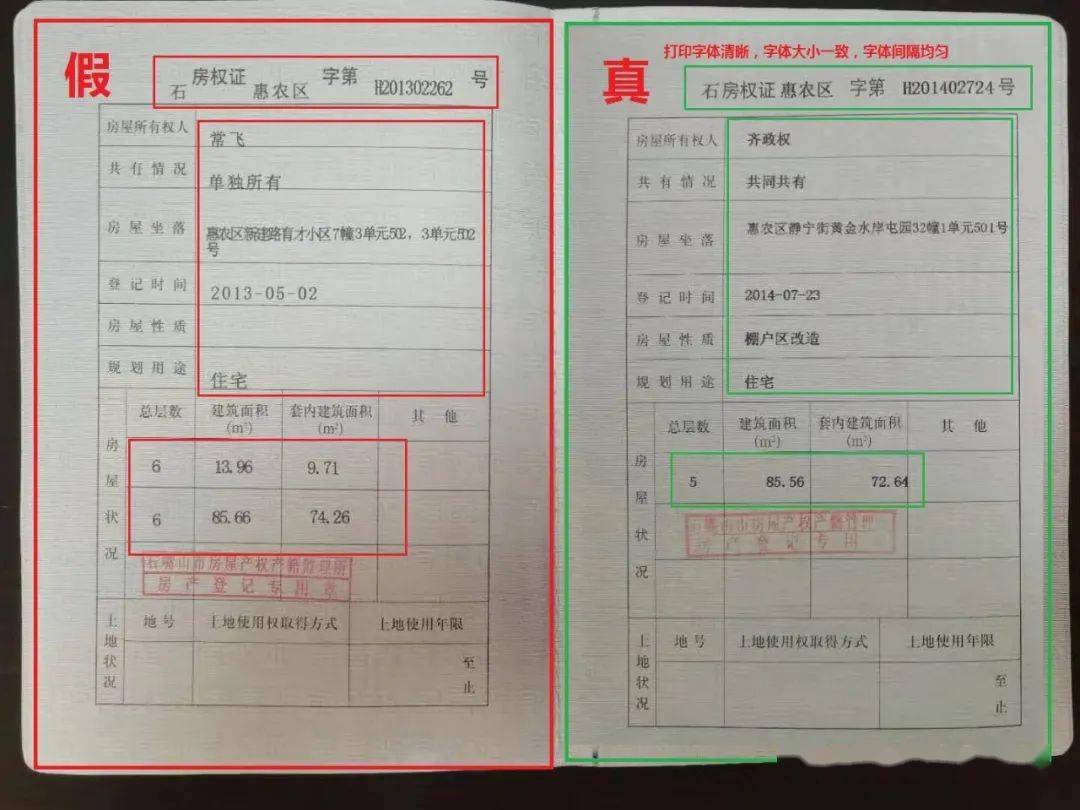 假
石 房权证 惠农区 字第 H201302262 号
房屋所有权人 常飞
共有情况 单独所有
房屋坐落 惠农区新建路育才小区7幢3单元502，3单元502
号
登记时间 2013-05-02
房屋性质
规划用途 住宅
房屋状况
总层数 建筑面积(m²) 套内建筑面积(m²) 其他
6 13.96 9.71
6 85.66 74.26
石嘴山市房屋产权产籍管理所
房产登记专用章
土地状况
地号 土地使用权取得方式 土地使用年限
至
止
真
打印字体清晰，字体大小一致，字体间隔均匀
石房权证 惠农区 字第 H201402724号
房屋所有权人 齐政权
共有情况 共同共有
房屋坐落 惠农区静宁街黄金水岸屯园32幢1单元501号
登记时间 2014-07-23
房屋性质 棚户区改造
规划用途 住宅
房屋状况
总层数 建筑面积(m²) 套内建筑面积(m²) 其他
5 85.56 72.64
石嘴山市房屋产权产籍管理
房产登记专用
土地状况
地号 土地使用权取得方式 土地使用年限
至
止